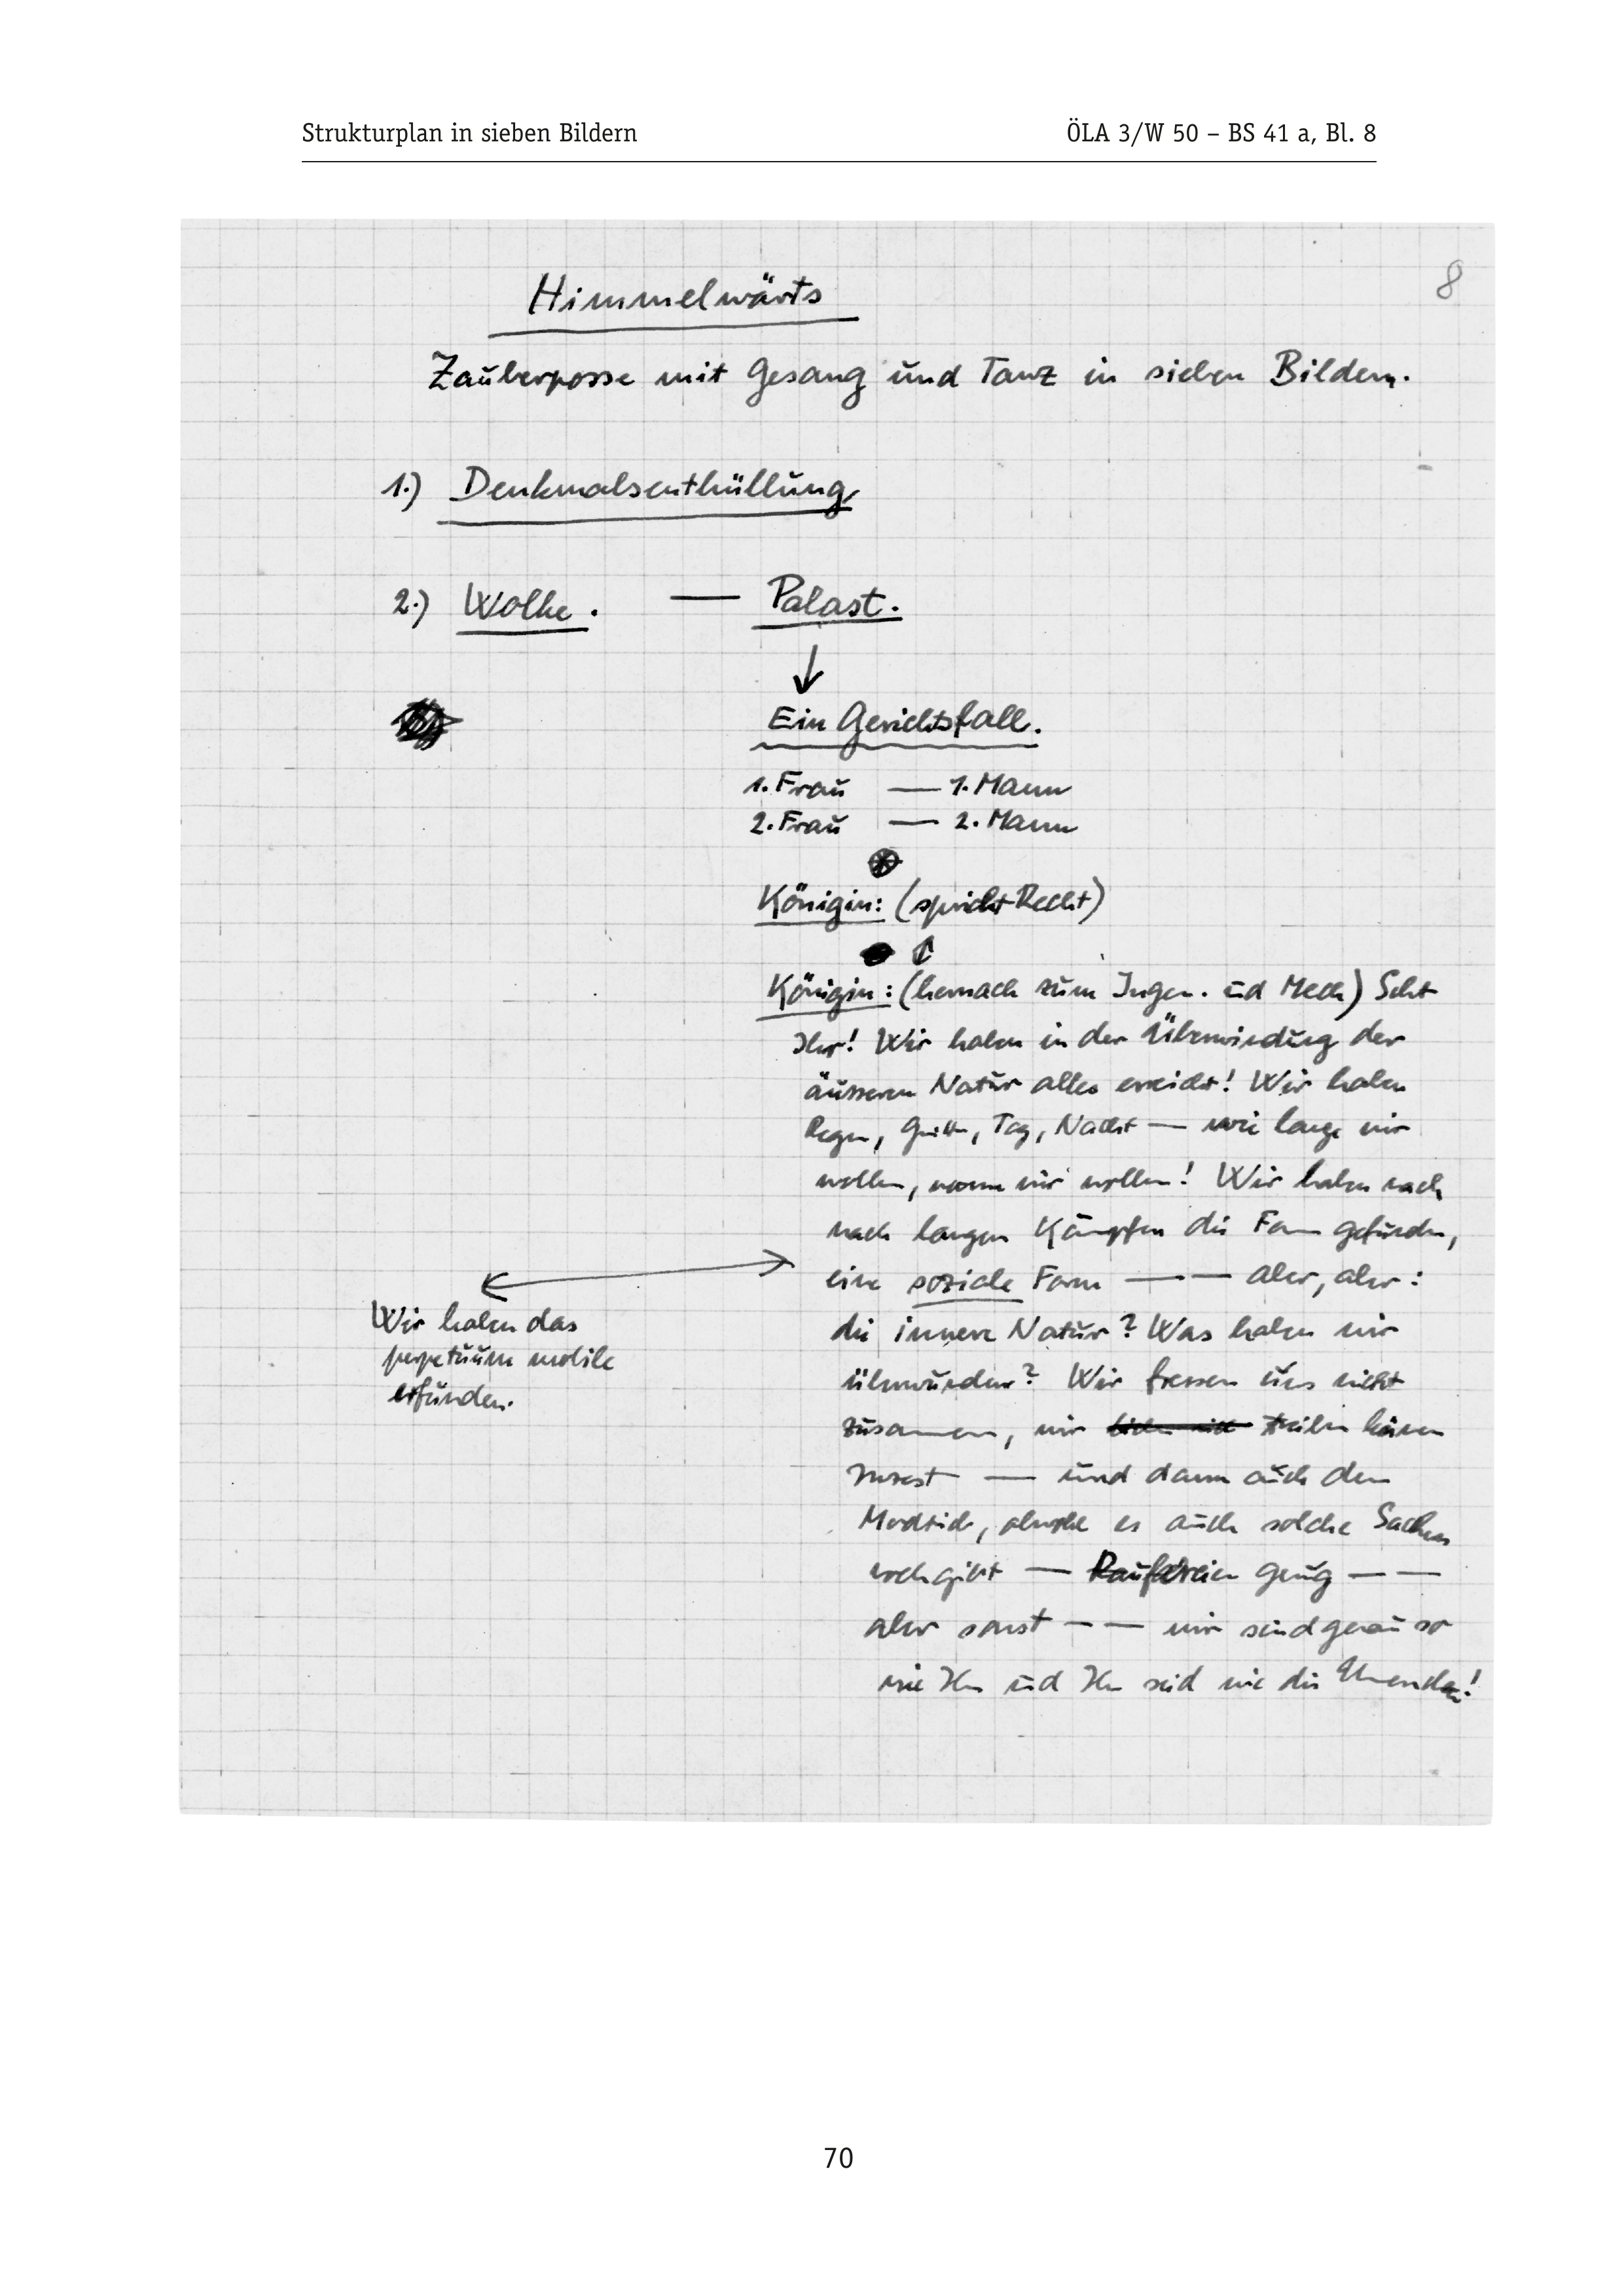 Strukturplan in sieben Bildern
ÖLA 3/W 50 – BS 41 a, Bl. 8
8
Himmelwärts
Zauberposse mit Gesang und Tanz in sieben Bildern.
1.) Denkmalsenthüllung
2.) Wolke. — Palast.
Ein Gerichtsfall.
1. Frau — 1. Mann
2. Frau — 2. Mann
Königin: (spricht Recht)
Königin: (hernach zum Ingen. und Mech) Seht
Ihr! Wir haben in der Überwindung der
äusseren Natur alles erreicht! Wir haben
Regen, Gewitter, Tag, Nacht — wie lange wir
wollen, wann wir wollen! Wir haben nach
nach langen Kämpfen die Form gefunden,
eine soziale Form — — aber, aber:
Wir haben das
perpetuum mobile
erfunden.
die innere Natur? Was haben wir
überwunden? Wir fressen uns nicht
zusammen, wir keinen
— und dann auch den
es auch solche Sachen
noch gibt — Raufereien genug — —
aber sonst — — wir sind genau so
wie Ihr und Ihr seid wie die
70